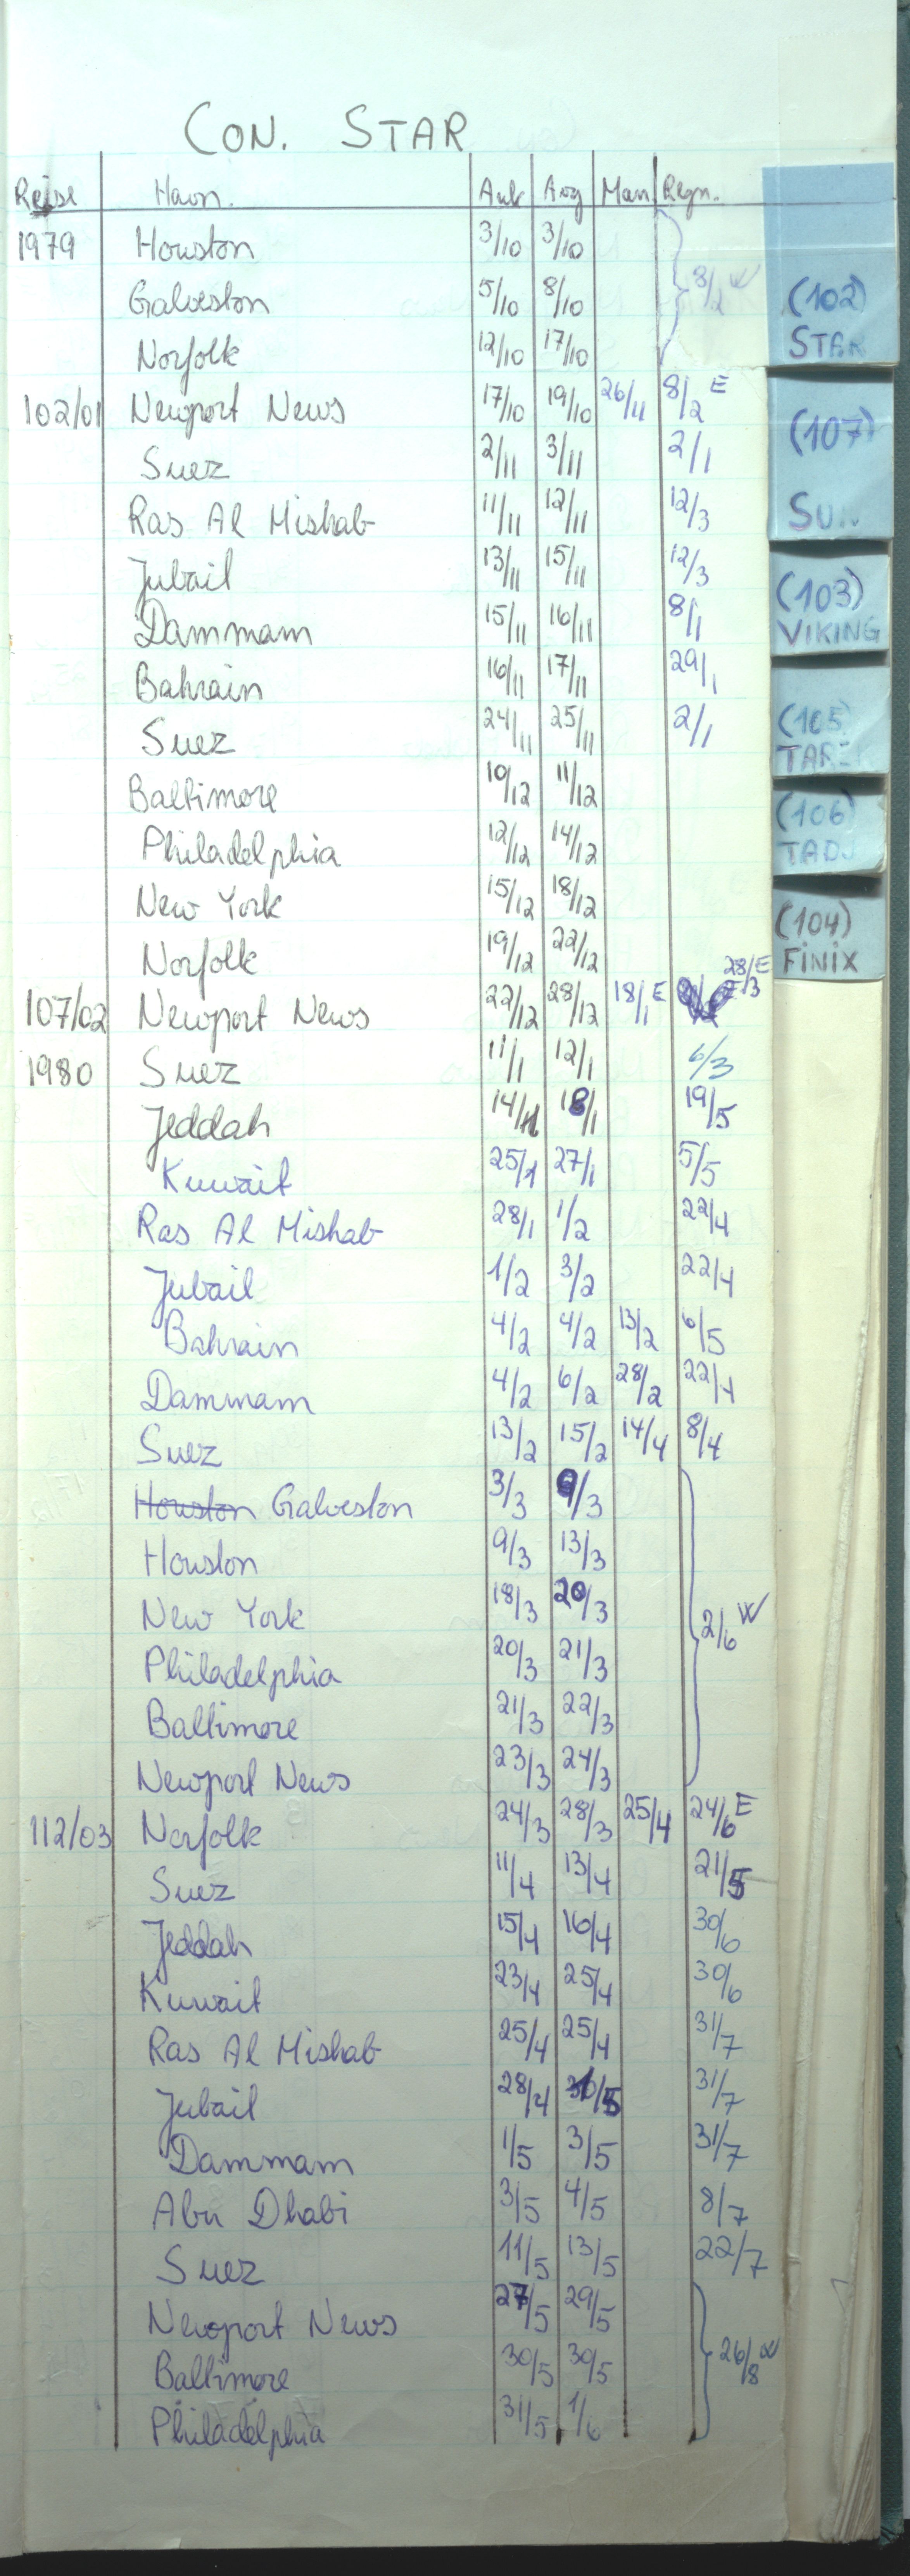 CON. STAR
Reise Havn. Ank Avg Man Regn.
1979 Houston 3/10 3/10
Galveston 5/10 8/10 8/2 W
Norfolk 12/10 17/10
102/01 Newport News 17/10 19/10 26/11 8/2 E
Suez 2/11 3/11 2/1
Ras Al Mishab 11/11 12/11 12/3
Jubail 13/11 15/11 12/3
Dammam 15/11 16/11 8/1
Bahrain 16/11 17/11 29/1
Suez 24/11 25/11 2/1
Baltimore 10/12 11/12
Philadelphia 12/12 14/12
New York 15/12 18/12
Norfolk 19/12 22/12
107/02 Newport News 22/12 28/12 18/1 E 28/3 E
1980 Suez 11/1 12/1 6/3
Jeddah 14/1 18/1 19/5
Kuwait 25/1 27/1 5/5
Ras Al Mishab 28/1 1/2 22/4
Jubail 1/2 3/2 22/4
Bahrain 4/2 4/2 13/2 6/5
Dammam 4/2 6/2 28/2 22/4
Suez 13/2 15/2 14/4 8/4
Houston Galveston 3/3 9/3
Houston 9/3 13/3
New York 18/3 20/3 2/6 W
Philadelphia 20/3 21/3
Baltimore 21/3 22/3
Newport News 23/3 24/3
112/03 Norfolk 24/3 28/3 25/4 24/6 E
Suez 11/4 13/4 21/5
Jeddah 15/4 16/4 30/6
Kuwait 23/4 25/4 30/6
Ras Al Mishab 25/4 25/4 31/7
Jubail 28/4 1/5 31/7
Dammam 1/5 3/5 31/7
Abu Dhabi 3/5 4/5 8/7
Suez 11/5 13/5 22/7
Newport News 27/5 29/5
Baltimore 30/5 30/5 26/8 W
Philadelphia 31/5 1/6
(102)
STAR
(107)
SUN
(103)
VIKING
(105)
(106)
(104)
FINIX